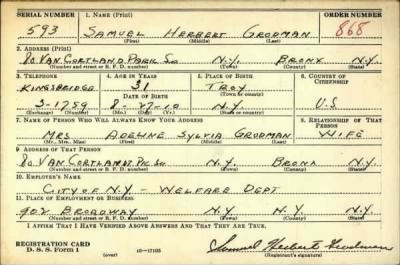 SERIAL NUMBER 1. Name (Print) ORDER NUMBER
593 SAMUEL HERBERT GRODMAN 868
(First) (Middle) (Last)
2. Address (Print)
80 VAN CORTLAND PARK SO. N.Y. BRONX N.Y.
(Number and street or R. F. D. number) (Town) (County) (State)
3. Telephone 4. Age in Years 5. Place of Birth 6. Country of Citizenship
KINGSBRIDGE 31 TROY
Date of Birth (Town or county)
3-1759 8-27-10 N.Y. U.S.
(Exchange) (Number) (Mo.) (Day) (Yr.) (State or country)
7. Name of Person Who Will Always Know Your Address 8. Relationship of That Person
MRS ADELINE SYLVIA GRODMAN WIFE
(Mr., Mrs., Miss) (First) (Middle) (Last)
9. Address of That Person
80 VAN CORTLANDT PK SO. N.Y. BRONX N.Y.
(Number and street or R. F. D. number) (Town) (County) (State)
10. Employer's Name
CITY OF N.Y. - WELFARE DEPT
11. Place of Employment or Business
902 BROADWAY N.Y. N.Y. N.Y.
(Number and street or R. F. D. number) (Town) (County) (State)
I Affirm That I Have Verified Above Answers and That They Are True.
REGISTRATION CARD
D. S. S. Form 1 (over) 16-17105 Samuel Herbert Grodman
(Registrant's signature)